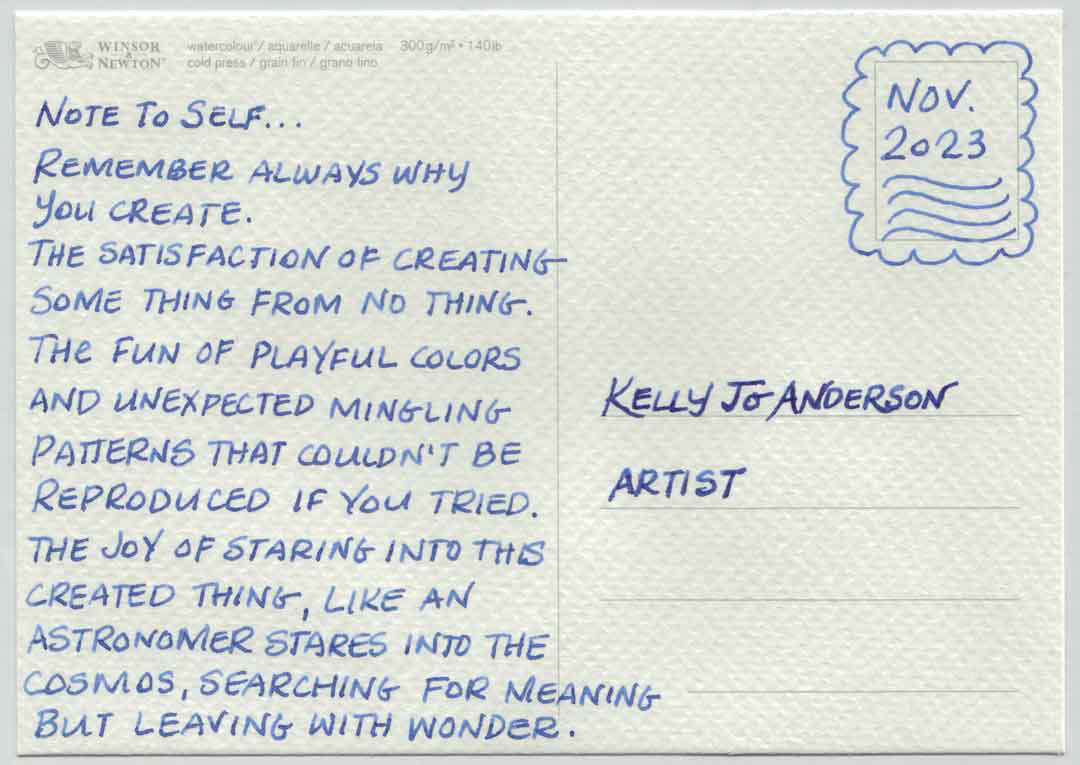 WINSOR & NEWTON
watercolour / aquarelle / acuarela 300g/m² • 140lb
cold press / grain fin / grano fino
NOTE TO SELF...
REMEMBER ALWAYS WHY
YOU CREATE.
THE SATISFACTION OF CREATING
SOME THING FROM NO THING.
THE FUN OF PLAYFUL COLORS
AND UNEXPECTED MINGLING
PATTERNS THAT COULDN'T BE
REPRODUCED IF YOU TRIED.
THE JOY OF STARING INTO THIS
CREATED THING, LIKE AN
ASTRONOMER STARES INTO THE
COSMOS, SEARCHING FOR MEANING
BUT LEAVING WITH WONDER.
NOV.
2023
KELLY JO ANDERSON
ARTIST